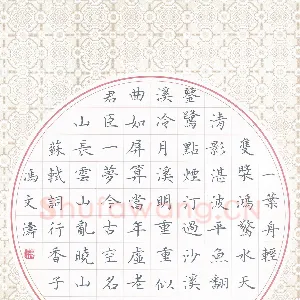 一葉舟輕
雙槳鴻驚水天
清影湛波平魚翻
鑒鷺點煙汀過沙溪
溪冷月溪明重重似
曲如屏算當年虛老
君臣一夢今古空名
山長雲山亂曉山
蘇軾詞行香子
馮文濤
shufawang.cn